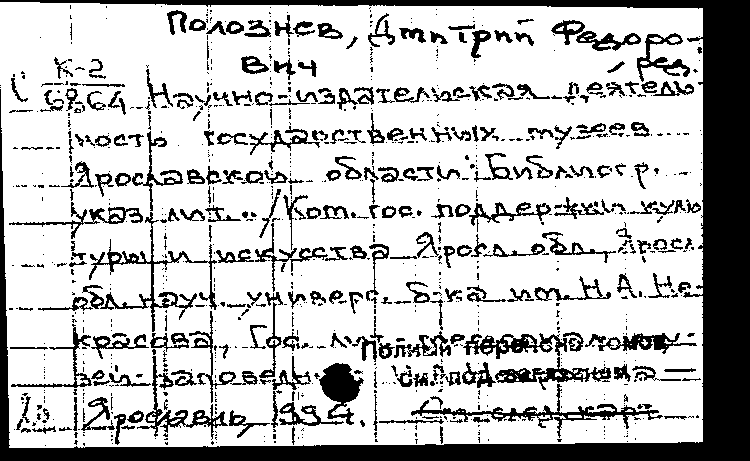 Полознев, Дмитрий Федоро-
вич , ред.
К-2
6864 Научно-издательская деятель-
ность государственных музеев
Ярославской области : Библиогр.
указ. лит. .. / Ком. гос. поддержки куль
туры и искусства Яросл. обл., Яросл.
обл. науч. универс. б-ка им. Н.А. Не-
красова, Гос. лит.-мемориал. му-
зей-заповедник
Полный перечень томов
см. под заглавием
Ярославль, 1994. См. след. карт.